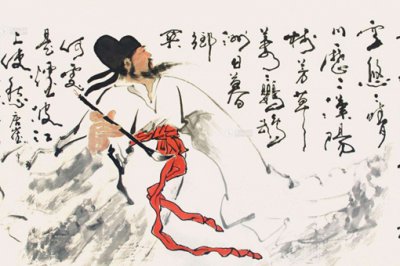 空悠〻晴
川歷〻漢陽
樹芳草
萋〻鸚鵡
洲日暮
鄉
關
何處
是煙波江
上使人愁唐崔